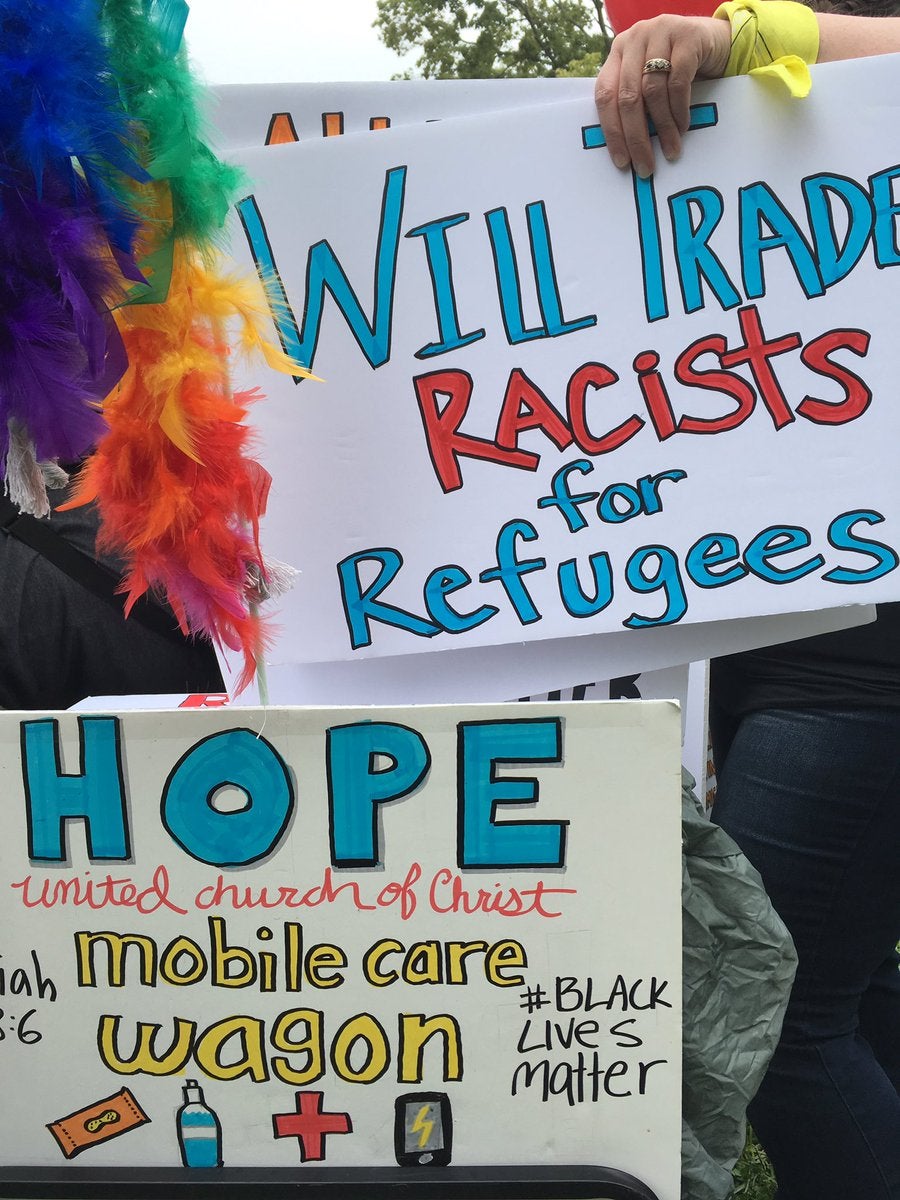 Will Trade
Racists
for
Refugees
HOPE
united church of Christ
mobile care
wagon
iah
:6
#BLACK
Lives
matter